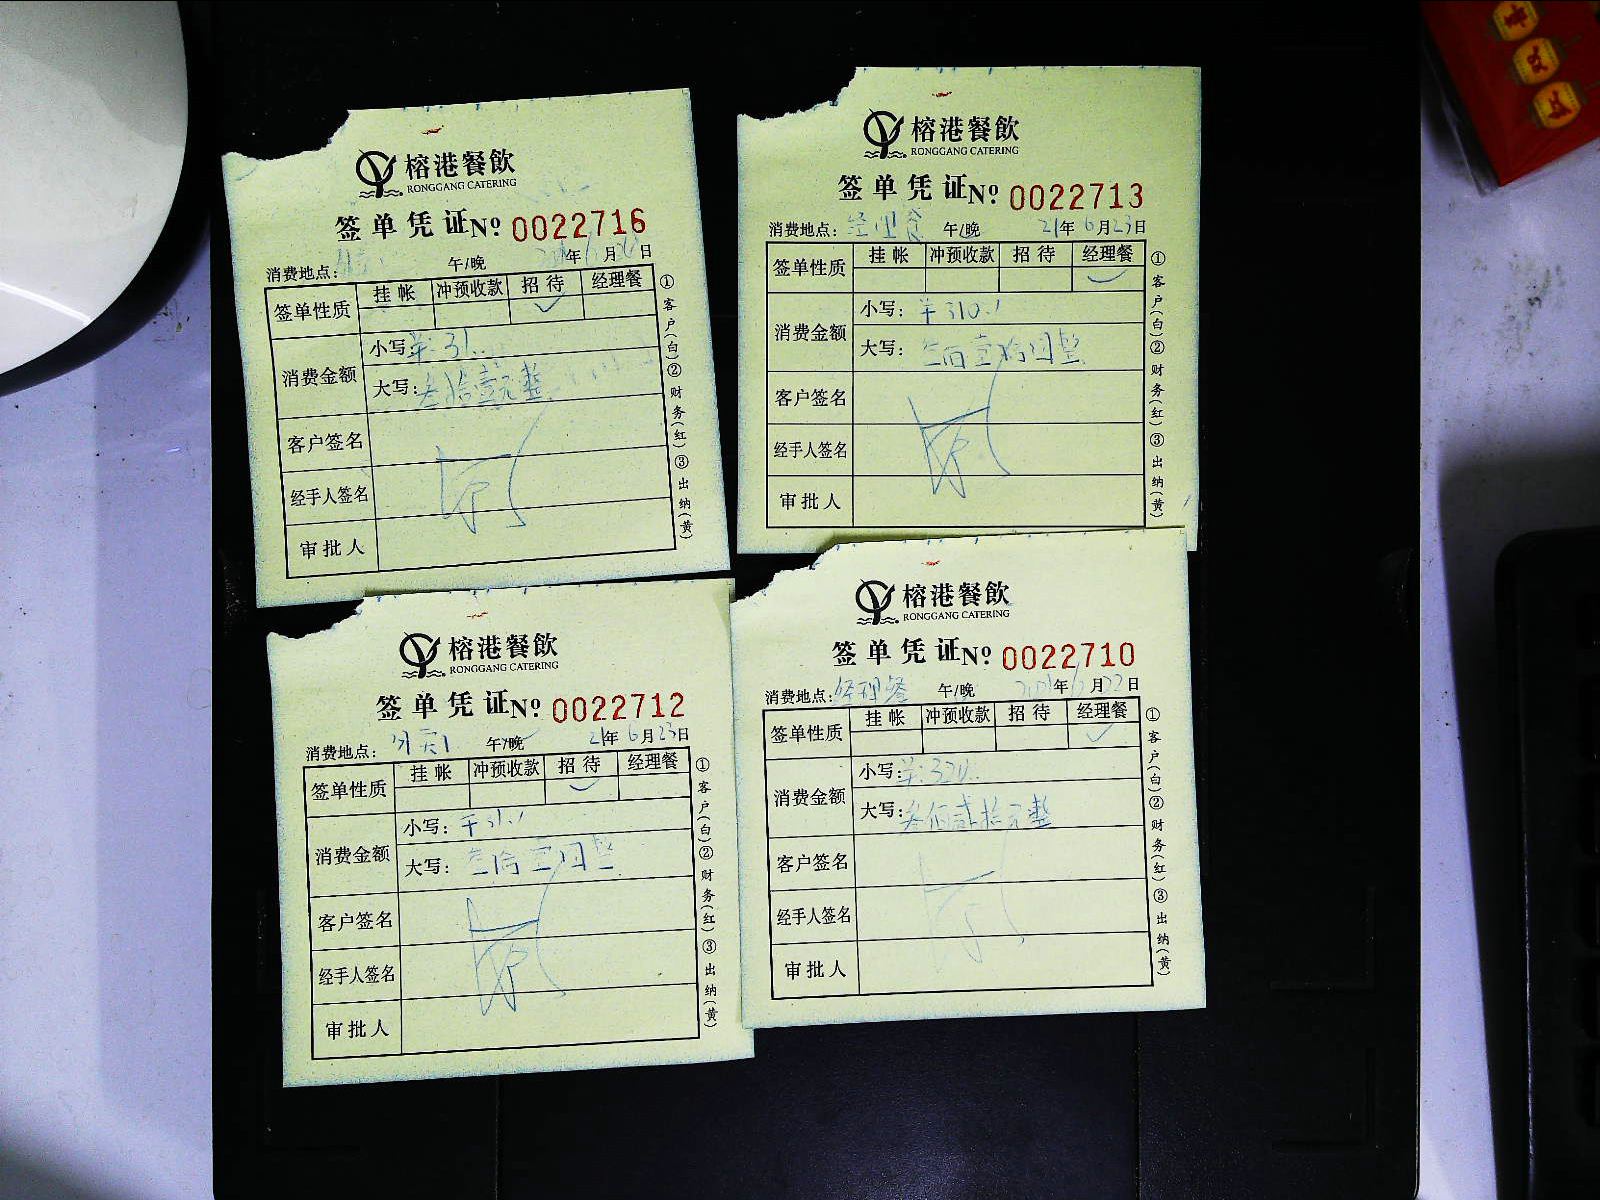 榕港餐飲
RONGGANG CATERING
签单凭证 Nº 0022716
消费地点: 午/晚 年 月 日
签单性质 挂帐 冲预收款 招待 经理餐
消费金额
小写 31
大写: 叁拾壹元整
客户签名
经手人签名
审批人
①客户(白)②财务(红)③出纳(黄)
榕港餐飲
RONGGANG CATERING
签单凭证 Nº 0022713
消费地点: 经理餐 午/晚 21年6月23日
签单性质 挂帐 冲预收款 招待 经理餐
消费金额
小写: 310.
大写:
客户签名
经手人签名
审批人
①客户(白)②财务(红)③出纳(黄)
榕港餐飲
RONGGANG CATERING
签单凭证 Nº 0022712
消费地点: 午/晚 21年6月23日
签单性质 挂帐 冲预收款 招待 经理餐
消费金额
小写:
大写:
客户签名
经手人签名
审批人
①客户(白)②财务(红)③出纳(黄)
榕港餐飲
RONGGANG CATERING
签单凭证 Nº 0022710
消费地点: 经理餐 午/晚 2021年6月22日
签单性质 挂帐 冲预收款 招待 经理餐
消费金额
小写: 320.
大写: 叁佰贰拾元整
客户签名
经手人签名
审批人
①客户(白)②财务(红)③出纳(黄)